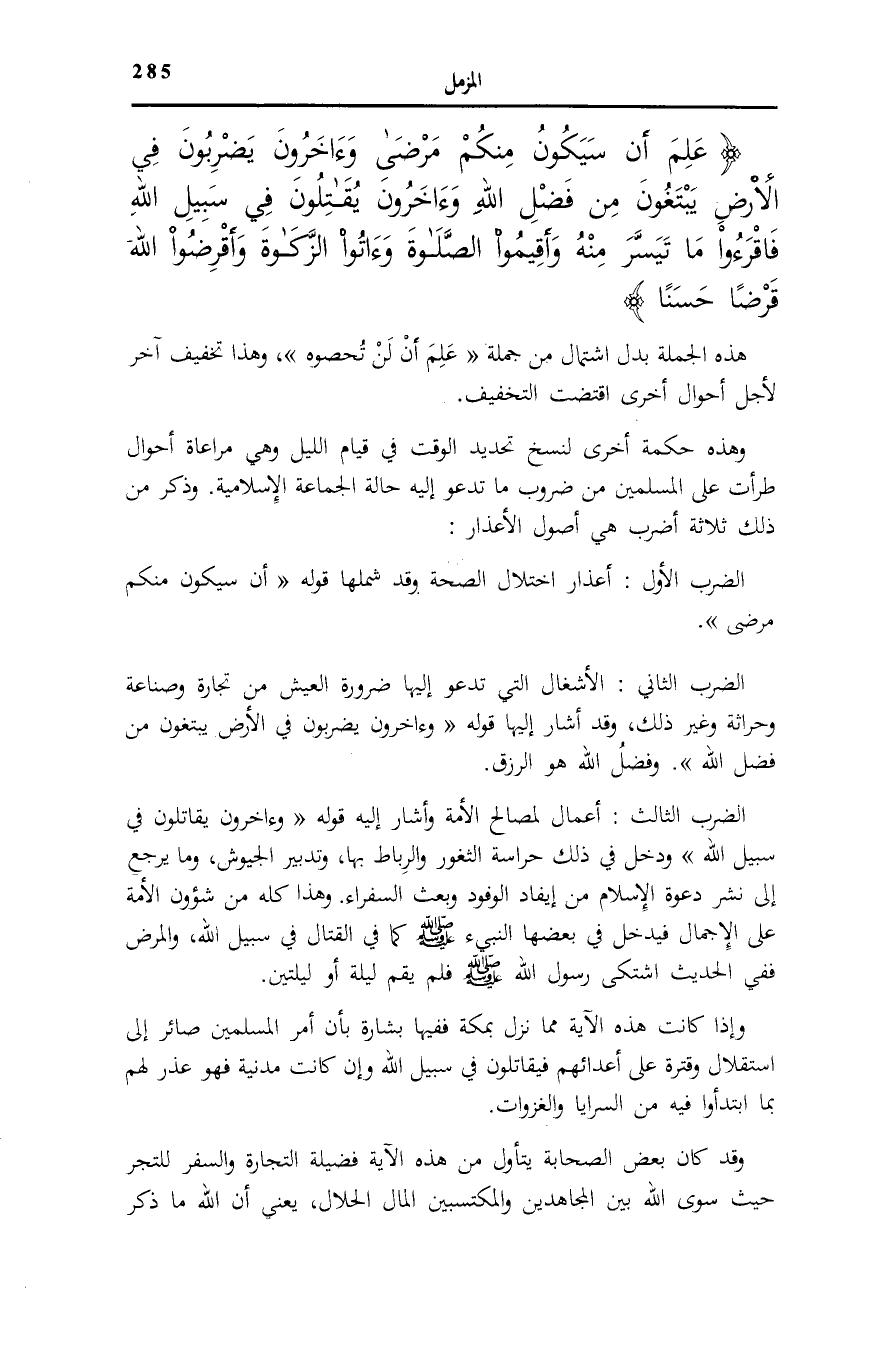 285
المزمل
﴿ عَلِمَ أَن سَيَكُونُ مِنكُمْ مَرْضَىٰ وَءَاخَرُونَ يَضْرِبُونَ فِي
اَلْأَرْضِ يَبْتَغُونَ مِن فَضْلِ اللهِ وَءَاخَرُونَ يُقَـٰتِلُونَ فِي سَبِيلِ اللهِ
فَاقْرَءُواْ مَا تَيَسَّرَ مِنْهُ وَأَقِيمُواْ الصَّلَـٰوةَ وَءَاتُواْ الزَّكَـٰوةَ وَأَقْرِضُواْ اللهَ
قَرْضًا حَسَنًا ﴾
هذه الجملة بدل اشتمال من جملة « عَلِمَ أَنْ لَنْ تُحصوه »، وهذا تخفيف آخر
لأجل أحوال أخرى اقتضت التخفيف.
وهذه حكمة أخرى لنسخ تحديد الوقت في قيام الليل وهي مراعاة أحوال
طرأت على المسلمين من ضروب ما تدعو إليه حالة الجماعة الإسلامية. وذكر من
ذلك ثلاثة أضرب هي أصول الأعذار :
الضرب الأول : أعذار اختلال الصحة وقد شملها قوله « أن سيكون منكم
مرضى ».
الضرب الثاني : الأشغال التي تدعو إليها ضرورة العيش من تجارة وصناعة
وحراثة وغير ذلك، وقد أشار إليها قوله « وءاخرون يضربون في الأرض يبتغون من
فضل الله ». وفضلُ الله هو الرزق.
الضرب الثالث : أعمال لمصالح الأمة وأشار إليه قوله « وءاخرون يقاتلون في
سبيل الله » ودخل في ذلك حراسة الثغور والرباط بها، وتدبير الجيوش، وما يرجع
إلى نشر دعوة الإسلام من إيفاد الوفود وبعث السفراء. وهذا كله من شؤون الأمة
على الإجمال فيدخل في بعضها النبيء ﷺ كما في القتال في سبيل الله، والمرض
ففي الحديث اشتكى رسول الله ﷺ فلم يقم ليلة أو ليلتين.
وإذا كانت هذه الآية مما نزل بمكة ففيها بشارة بأن أمر المسلمين صائر إلى
استقلال وقترة على أعدائهم فيقاتلون في سبيل الله وإن كانت مدنية فهو عذر لهم
بما ابتدأوا فيه من السرايا والغزوات.
وقد كان بعض الصحابة يتأول من هذه الآية فضيلة التجارة والسفر للتجر
حيث سوى الله بين المجاهدين والمكتسبين المال الحلال، يعني أن الله ما ذكر